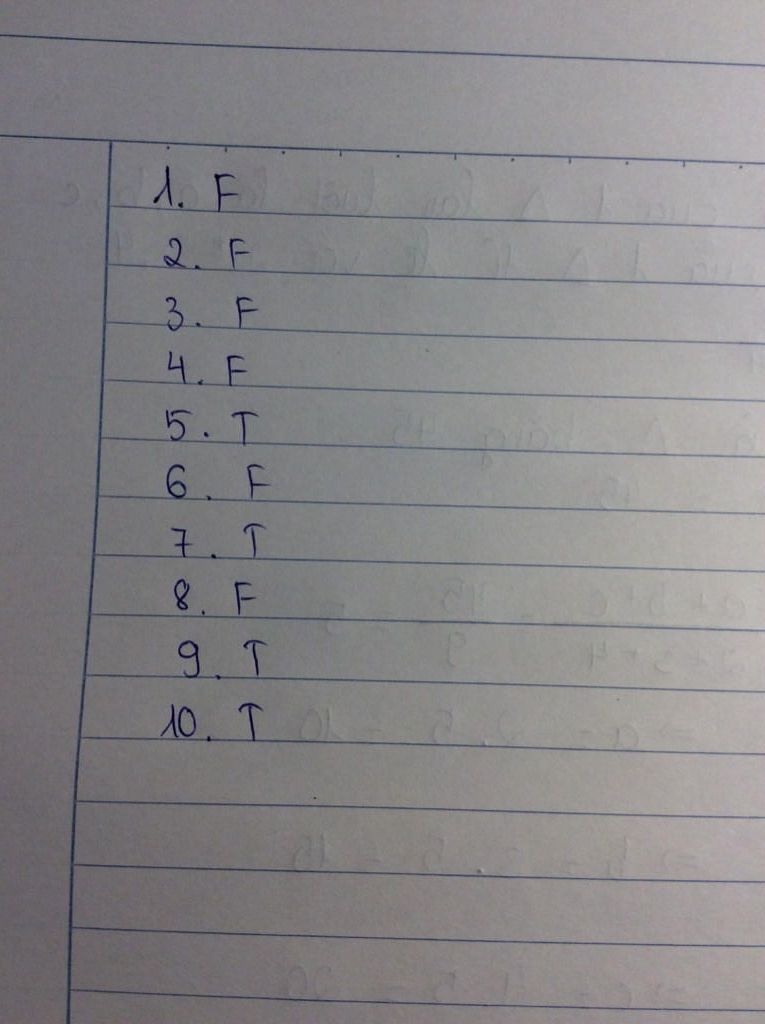 1. F
2. F
3. F
4. F
5. T
6. F
7. T
8. F
9. T
10. T